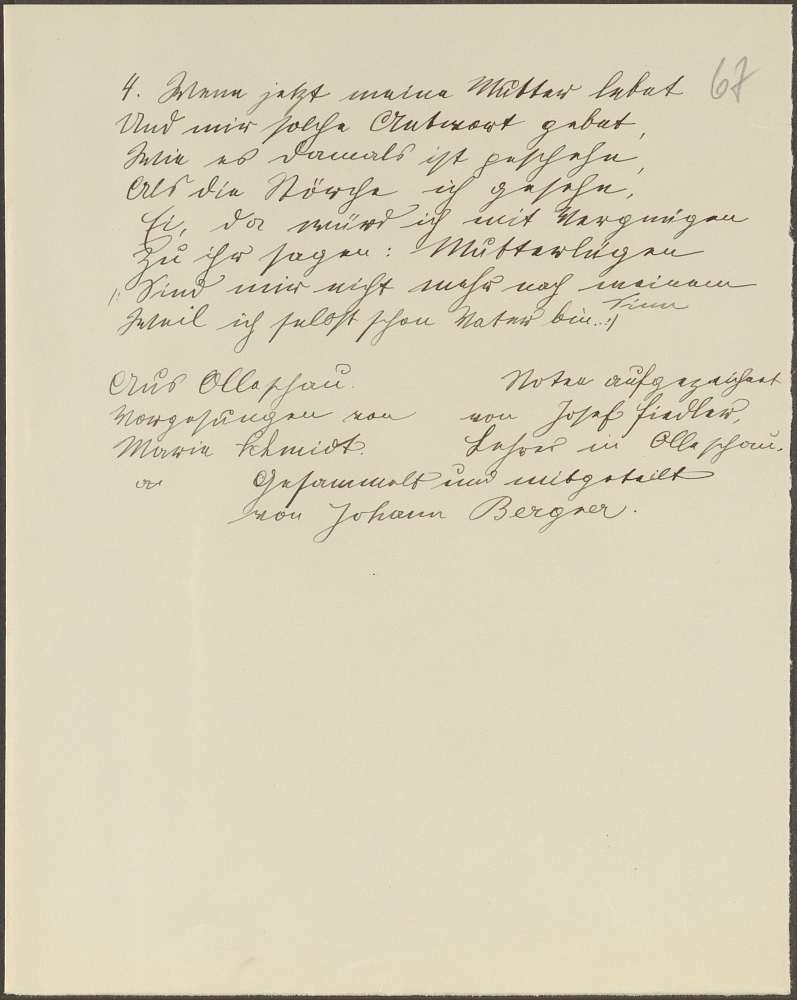 67
4. Wenn jetzt meine Mutter lebet
Und mir solche Antwort gebet,
Wie es damals ist geschehn,
Als die Störche ich gesehn,
Ei, da würd ich mit Vergnügen
Zu ihr sagen: Mutterlügen
/: Sind mir nicht mehr nach meinem Sinn
Weil ich selbst schon Vater bin. :/
Aus Olleschau. Noten aufgezeichnet
Vorgesungen von von Josef Fiedler,
Marie Schmidt. Lehrer in Olleschau.
Gesammelt und mitgeteilt
von Johann Bergner.